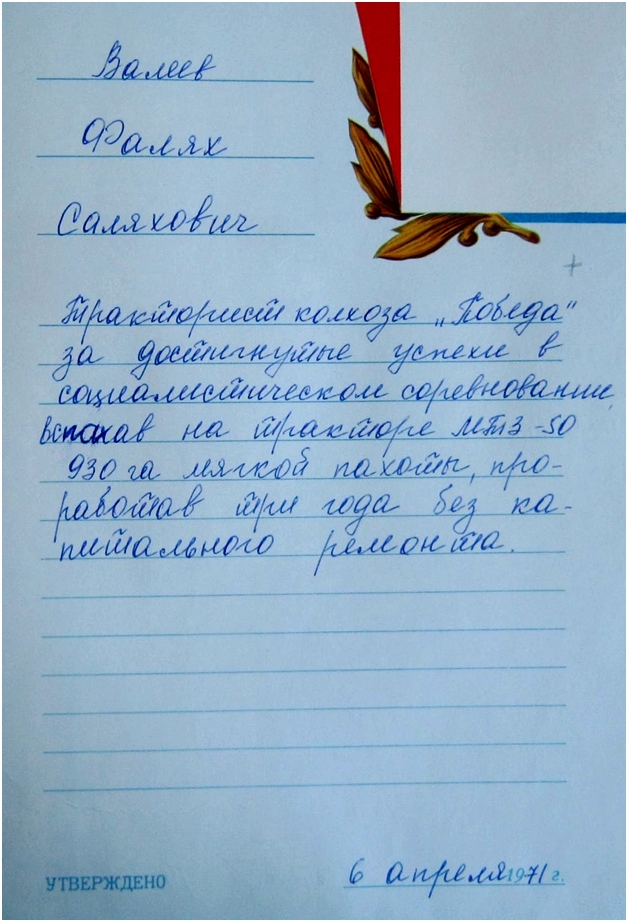 Валеев
Фалях
Саляхович
Тракторист колхоза „Победа"
за достигнутые успехи в
социалистическом соревновании,
вспахав на тракторе МТЗ-50
930 га мягкой пахоты, про-
работав три года без ка-
питального ремонта.
УТВЕРЖДЕНО 6 апреля 1971 г.